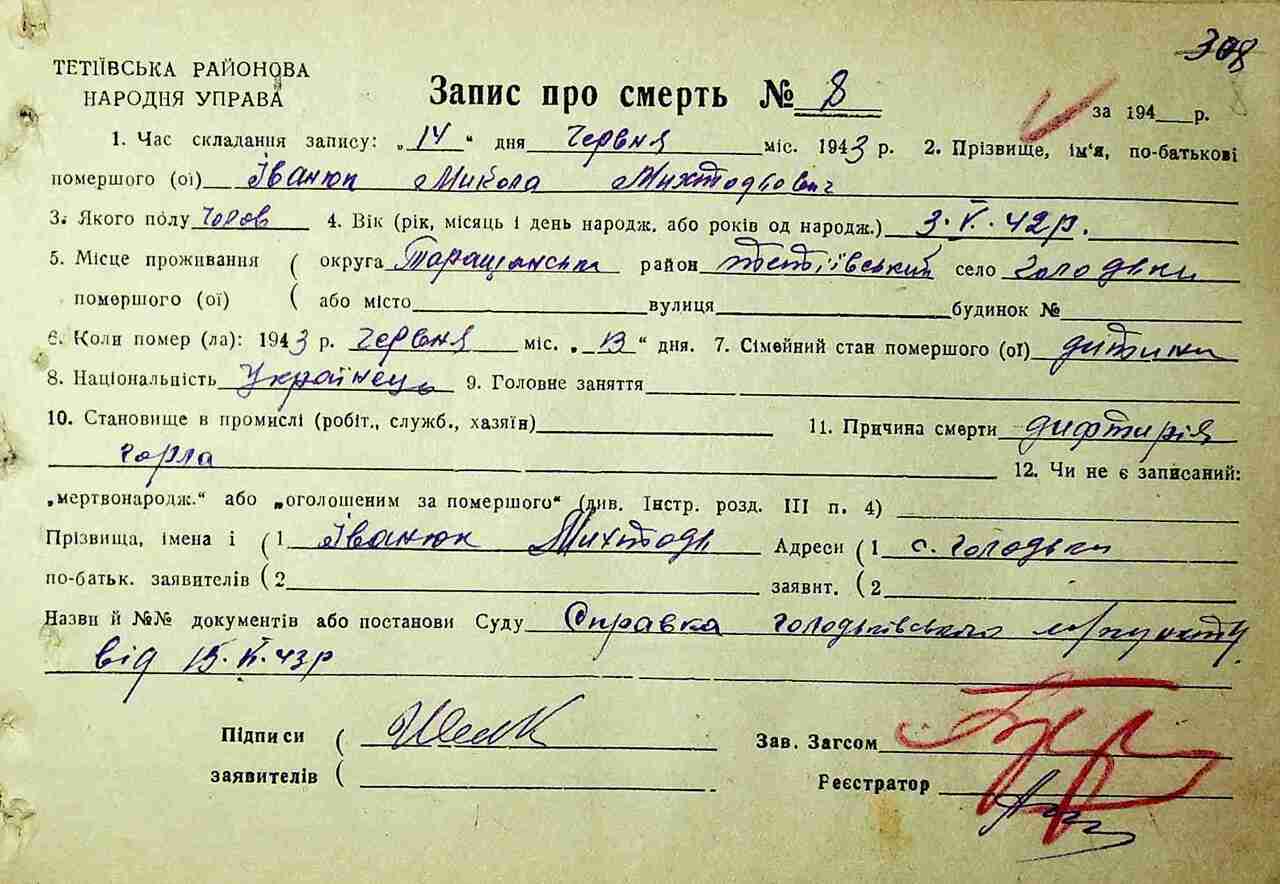 308
ТЕТІЇВСЬКА РАЙОНОВА
НАРОДНЯ УПРАВА
Запис про смерть № 8
за 194 р.
1. Час складання запису: „14“ дня Червня міс. 1943 р. 2. Прізвище, ім'я, по-батькові
помершого (ої) Іванюк Микола Михтодьович
3. Якого полу Чолов 4. Вік (рік, місяць і день народж. або років од народж.) 3.V.42р.
5. Місце проживання ( округа Таращанська район Тетіївський село Голодьки
помершого (ої) ( або місто вулиця будинок №
6. Коли помер (ла): 1943 р. Червня міс. „13“ дня. 7. Сімейний стан помершого (ої) дитина
8. Національність Українець 9. Головне заняття
10. Становище в промислі (робіт., служб., хазяїн) 11. Причина смерти дифтирія
горла 12. Чи не є записаний:
„мертвонародж.“ або „оголошеним за помершого“ (див. Інстр. розд. III п. 4)
Прізвища, імена і (1 Іванюк Михтодь Адреси (1 с. Голодьки
по-батьк. заявителів (2 заявит. (2
Назви й №№ документів або постанови Суду Справка голодьківського
від 15.VI.43р
Підписи (
Зав. Загсом
заявителів (
Реєстратор